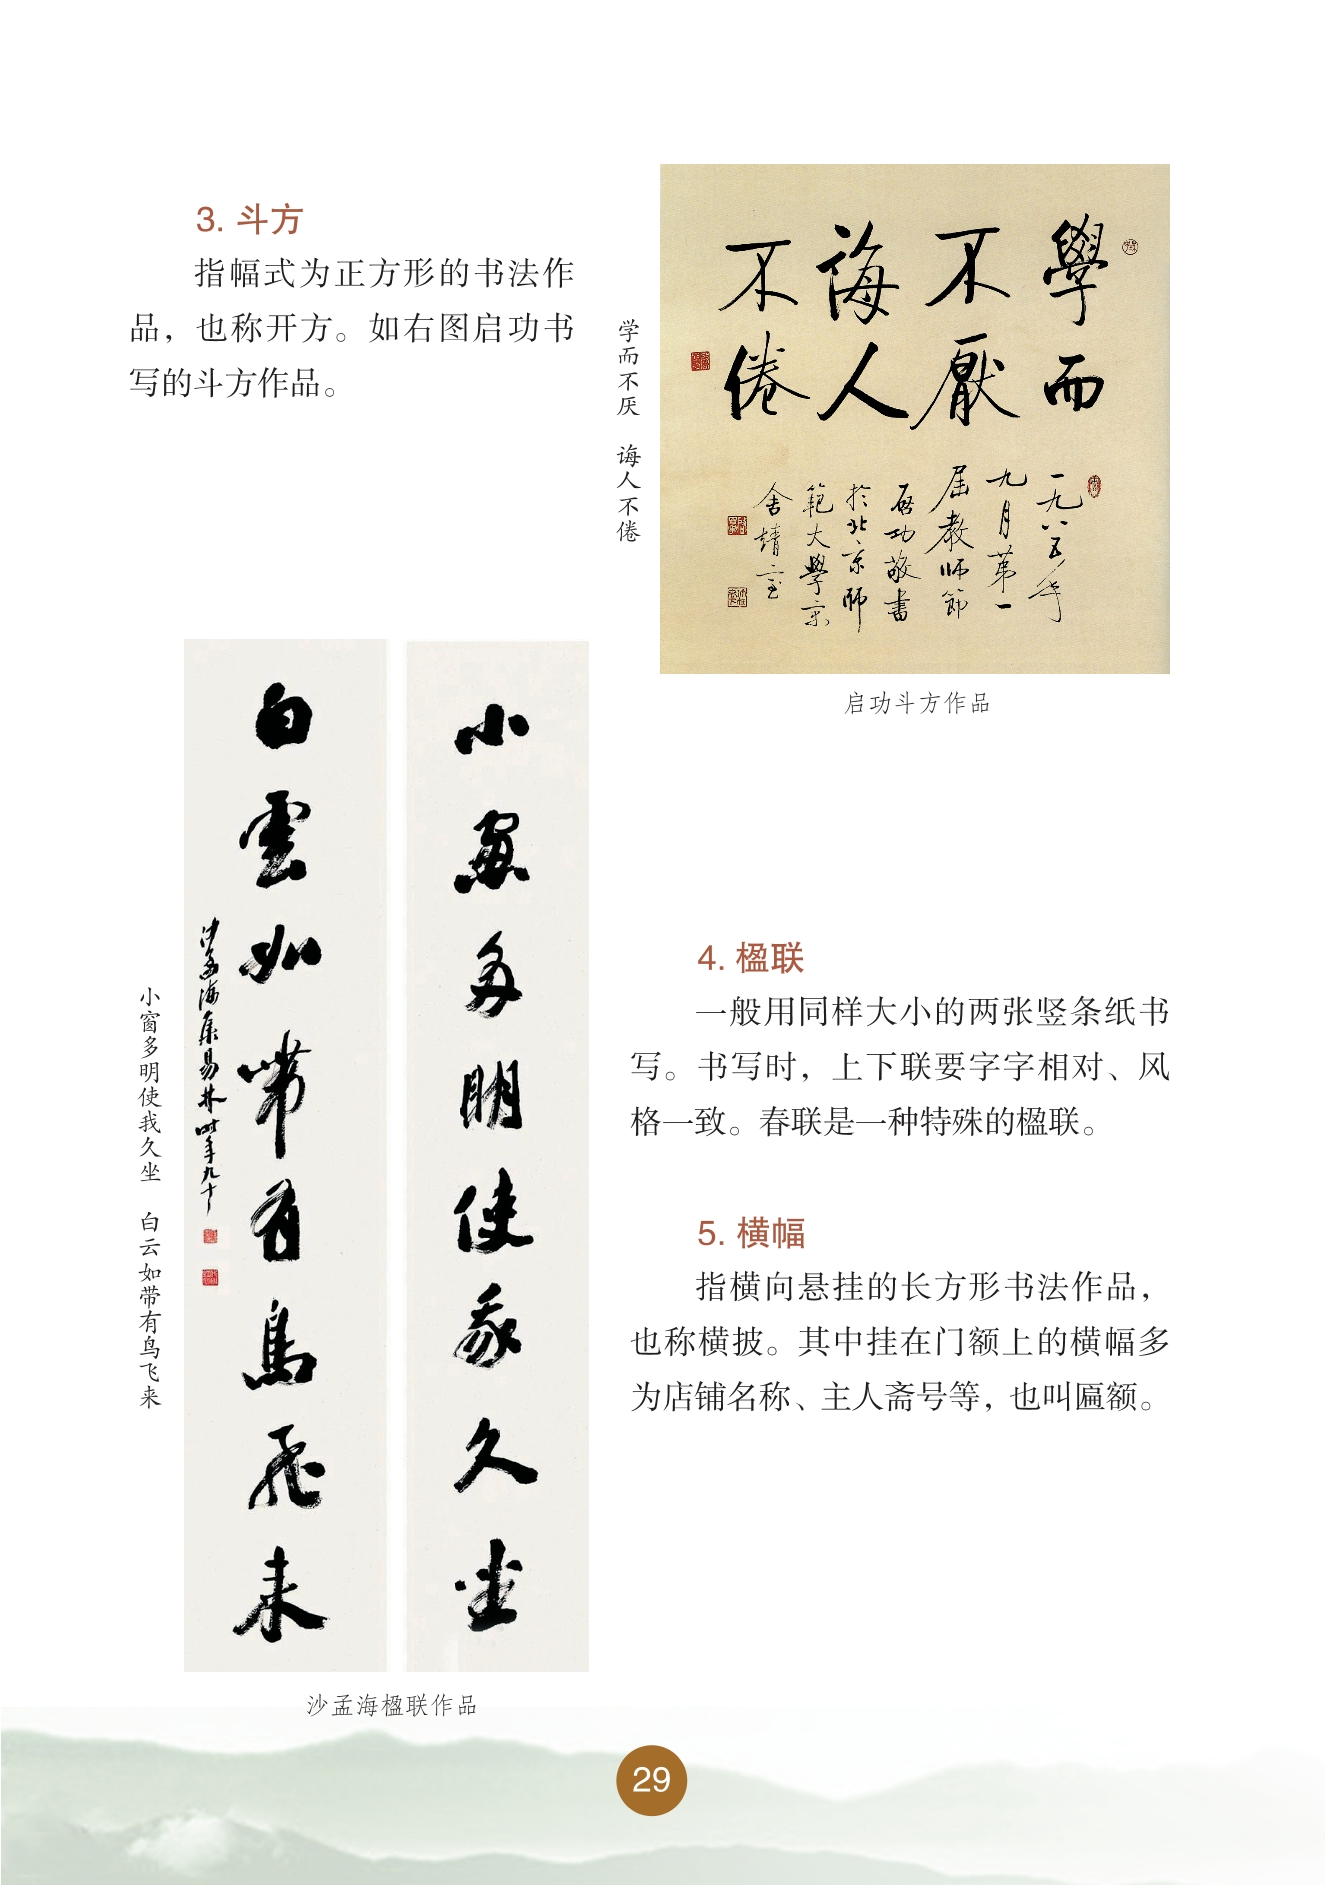 3. 斗方
指幅式为正方形的书法作
品，也称开方。如右图启功书
写的斗方作品。
学而不厌　诲人不倦
學而
不厭
誨人
不倦
一九八五年
九月第一
屆教師節
启功敬書
於北京師
範大學宗
舍靖室
启功斗方作品
小窗多明使我久坐　白云如带有鸟飞来
小窗多明使我久坐
白雲如帶有鳥飛来
沙孟海集易林時年九十
沙孟海楹联作品
4. 楹联
一般用同样大小的两张竖条纸书
写。书写时，上下联要字字相对、风
格一致。春联是一种特殊的楹联。
5. 横幅
指横向悬挂的长方形书法作品，
也称横披。其中挂在门额上的横幅多
为店铺名称、主人斋号等，也叫匾额。
29